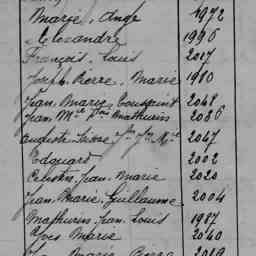 Marie, Ange 1972
Alexandre 1996
François, Louis 2017
Joseph, Pierre, Marie 1980
Jean Marie Toussaint 2048
Jean Mathurin 2086
Auguste 2047
Edouard 2002
Célestin, Jean, Marie 2020
Jean, Marie, Guillaume 2004
Mathurin, Jean, Louis 1987
Yves Marie 2040
Marie 2019